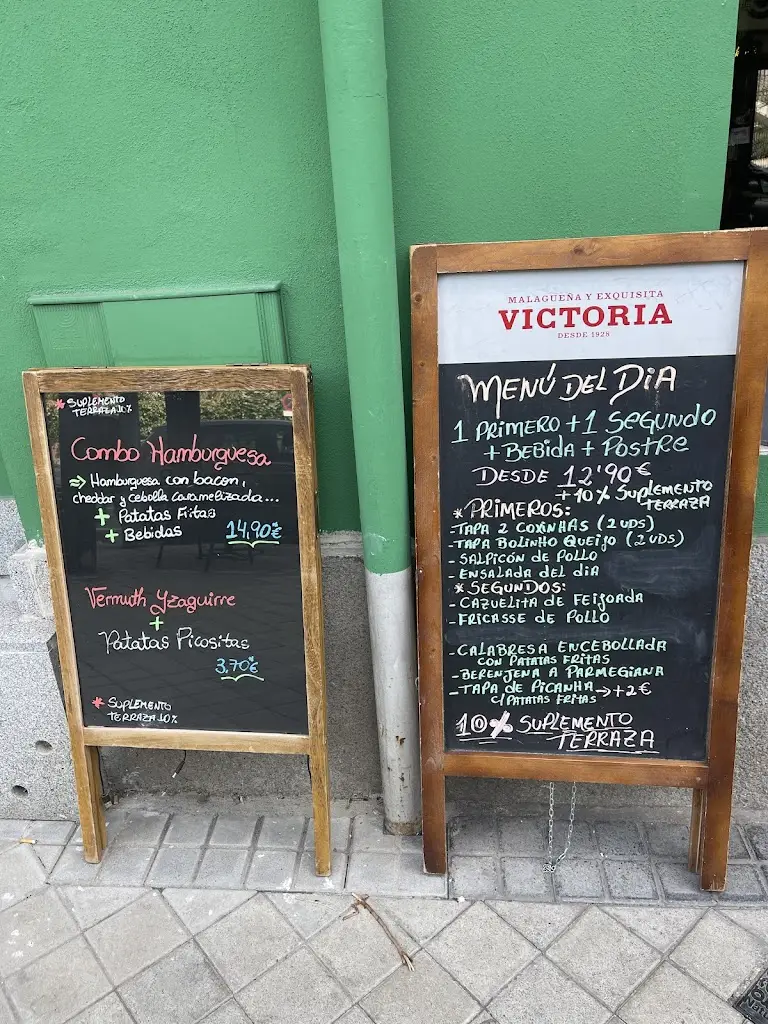 * SUPLEMENTO
TERRAZA 10%
Combo Hamburguesa
⇒ Hamburguesa con bacon,
cheddar y cebolla caramelizada...
+ Patatas Fritas
+ Bebidas 14,90€
Vermuth Yzaguirre
+
Patatas Picositas
3,70€
* SUPLEMENTO
TERRAZA 10%
MALAGUEÑA Y EXQUISITA
VICTORIA
DESDE 1928
MENÚ DEL DIA
1 PRIMERO + 1 SEGUNDO
+ BEBIDA + POSTRE
DESDE 12'90€
+10% SUPLEMENTO
TERRAZA
* PRIMEROS:
- TAPA 2 COXINHAS (2 UDS)
- TAPA BOLINHO QUEIJO (2 UDS)
- SALPICÓN DE POLLO
- ENSALADA DEL DIA
* SEGUNDOS:
- CAZUELITA DE FEIJOADA
- FRICASSE DE POLLO
- CALABRESA ENCEBOLLADA
CON PATATAS FRITAS
- BERENJENA A PARMEGIANA
- TAPA DE PICANHA → +2€
C/ PATATAS FRITAS
10% SUPLEMENTO
TERRAZA